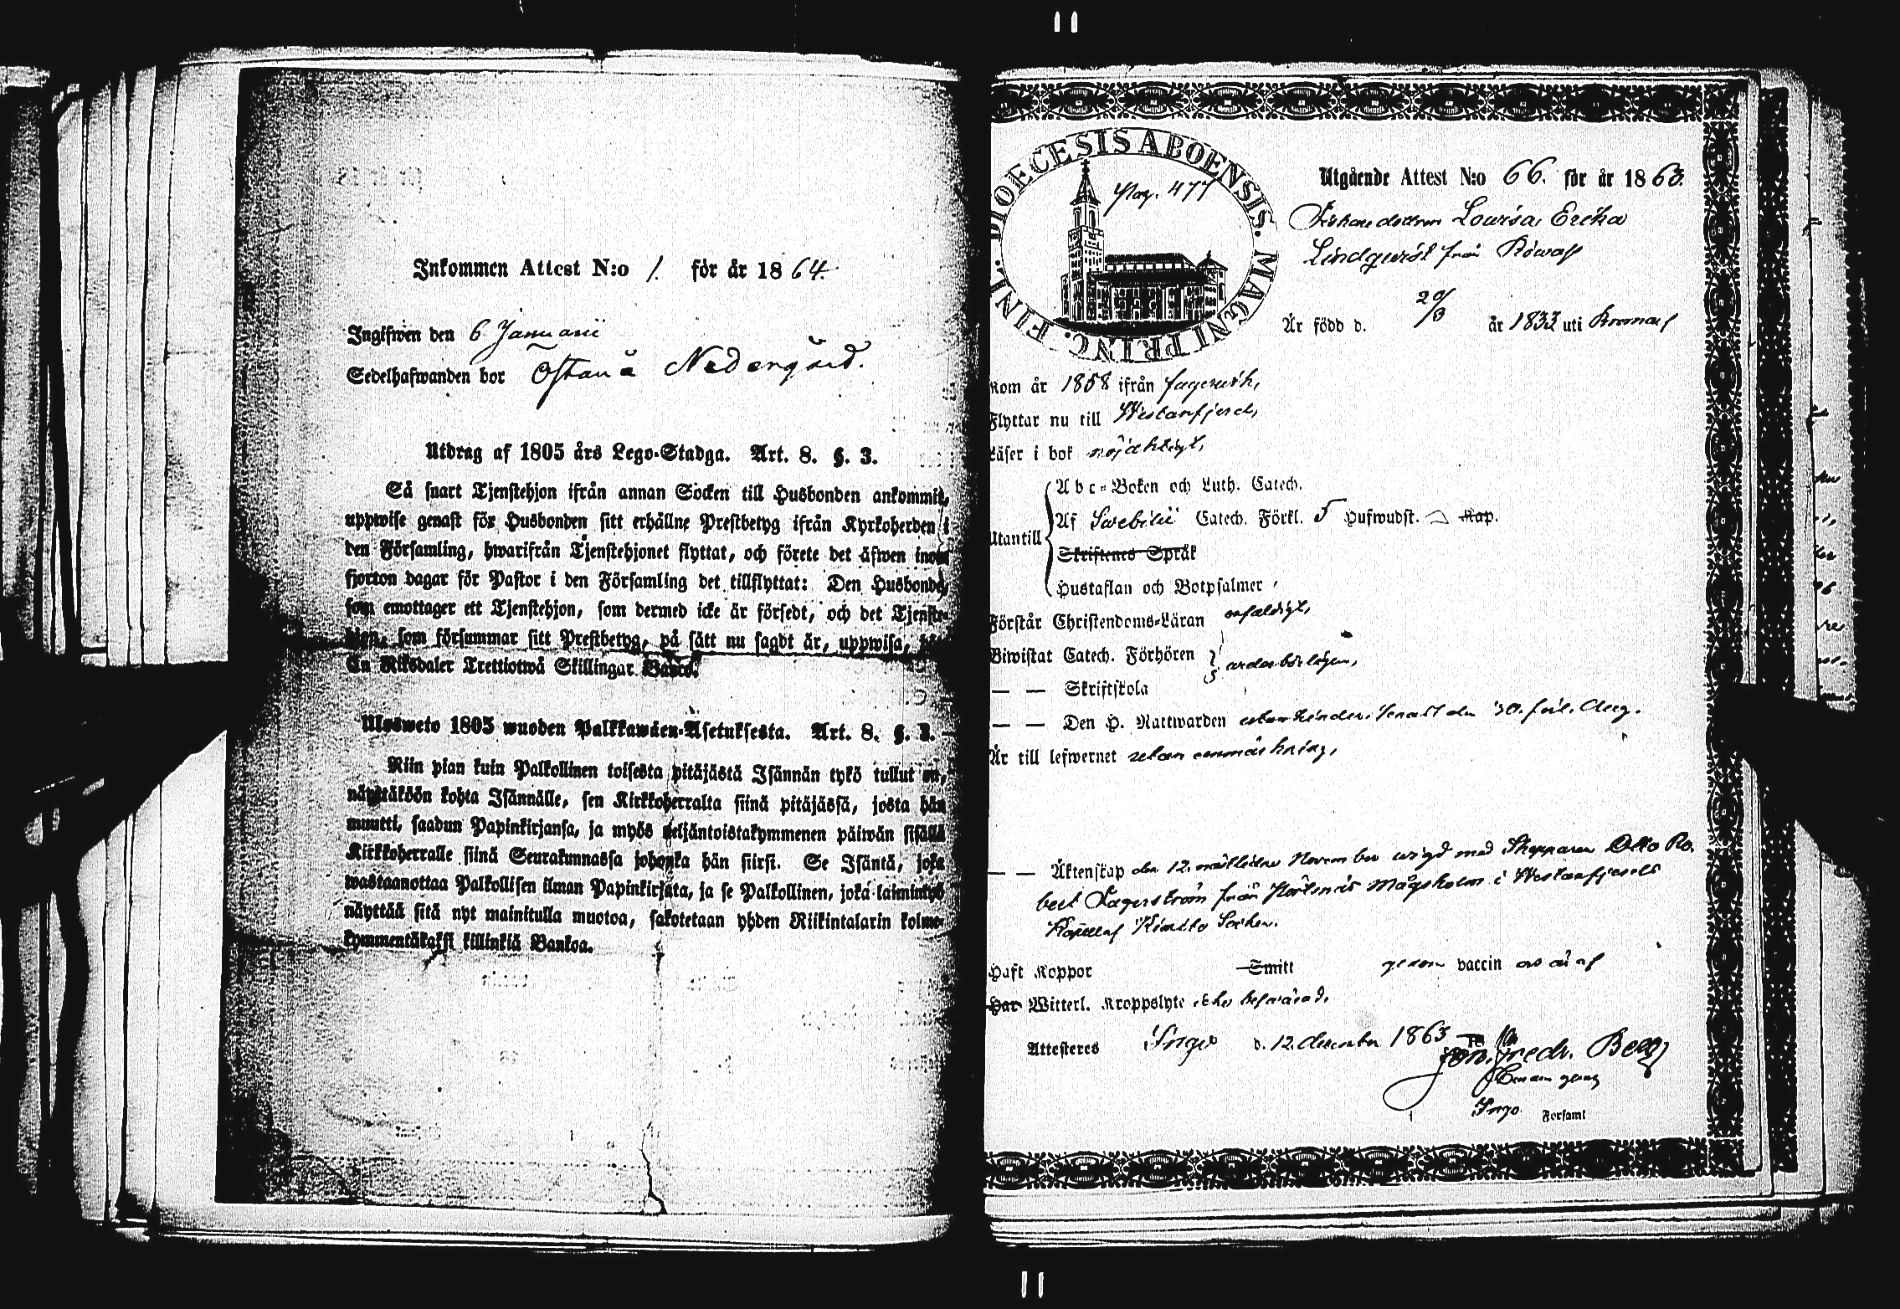 Inkommen Attest N:o 1. för år 1864.
Ingifwen den 6 Januarii
Sedelhafwanden bor Östanå Nedergård.
Utdrag af 1805 års Lego-Stadga. Art. 8. §. 3.
Så snart Tjenstehjon ifrån annan Socken till Husbonden ankommit,
uppwise genast för Husbonden sitt erhållne Prestbetyg ifrån Kyrkoherden i
den Församling, hwarifrån Tjenstehjonet flyttat, och förete det äfwen inom
fjorton dagar för Pastor i den Församling det tillflyttat: Den Husbonde,
som emottager ett Tjenstehjon, som dermed icke är försedt, och det Tjenste-
hjon, som försummar sitt Prestbetyg, på sätt nu sagdt är, uppwisa,
En Riksdaler Trettiotwå Skillingar Banco.
Ulosweto 1805 wuoden Palkkawäen-Asetuksesta. Art. 8. §. 3.
Niin pian kuin Palkollinen toisesta pitäjästä Isännän tykö tullut on,
näyttäköön kohta Isännälle, sen Kirkkoherralta siinä pitäjässä, josta hän
muutti, saadun Papinkirjansa, ja myös neljäntoistakymmenen päiwän sisällä
Kirkkoherralle siinä Seurakunnassa johonka hän siirsi. Se Isäntä, joka
wastaanottaa Palkollisen ilman Papinkirjata, ja se Palkollinen, joka laiminlyö
näyttää sitä nyt mainitulla muotoa, sakotetaan yhden Riikintalarin kolme-
kymmentäkaksi killinkiä Bankoa.
DIOECESIS ABOENSIS. MAGNI PRINC. FINL.
Pag. 477
Utgående Attest N:o 66. för år 1863.
Louisa Erika
Lindqvist från
Är född d. 29/3 år 1833 uti Bromarf
Kom år 1858 ifrån Fagervik,
Flyttar nu till Westanfjerd,
Läser i bok nöjaktigt,
Utantill
Abc-Boken och Luth. Catech.
Af Swebilii Catech. Förkl. 5 Hufwudst. Kap.
Skriftenes Språk
Hustaflan och Botpsalmer
Förstår Christendoms-Läran enfaldigt,
Biwistat Catech. Förhören
— — Skriftskola
— — Den H. Nattwarden utan hinder, senast den 30. Aug.
Är till lefwernet utan anmärkning,
— — Äktenskap den 12. November wigd med Skepparen Otto Ro-
bert Lagerström från Mågsholm i Westanfjerds
Kapell af Kimito Socken.
Haft Koppor Smitt genom vaccin
Har Witterl. Kroppslyte icke
Attesteres Ingo d. 12. december 1863
Fredr. Berg
Ingo Forsaml